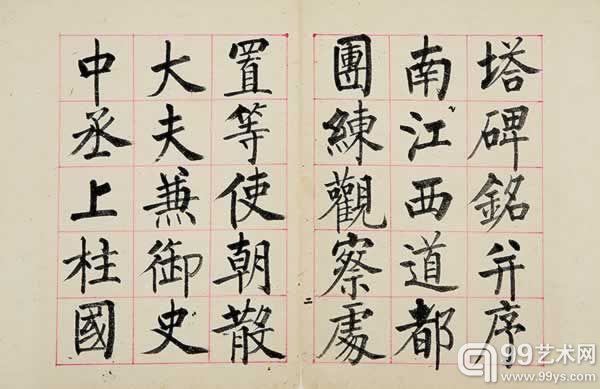 塔碑銘并序
南江西道都
團練觀察處
置等使朝散
大夫兼御史
中丞上柱國
99艺术网
www.99ys.com